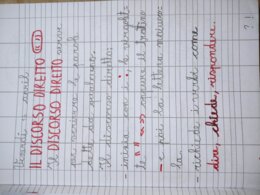 IL DISCORSO DIRETTO
Il DISCORSO DIRETTO serve
per scrivere le parole
dette da qualcuno.
Il discorso diretto:
- inizia con i : , le virgolet-
te " " « » oppure il trattino
- e poi la lettera maiuscola.
- richiede i verbi come
dire, chiedere, rispondere..
? !